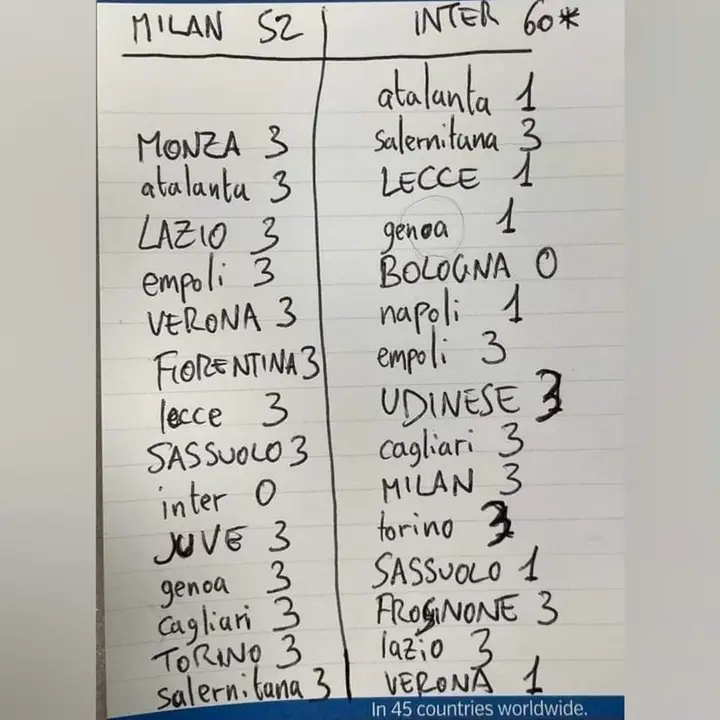 MILAN 52
MONZA 3
atalanta 3
LAZIO 3
empoli 3
VERONA 3
FIORENTINA 3
lecce 3
SASSUOLO 3
inter 0
JUVE 3
genoa 3
cagliari 3
TORINO 3
salernitana 3
INTER 60*
atalanta 1
salernitana 3
LECCE 1
genoa 1
BOLOGNA 0
napoli 1
empoli 3
UDINESE 3
cagliari 3
MILAN 3
torino 3
SASSUOLO 1
FROSINONE 3
lazio 3
VERONA 1
In 45 countries worldwide.